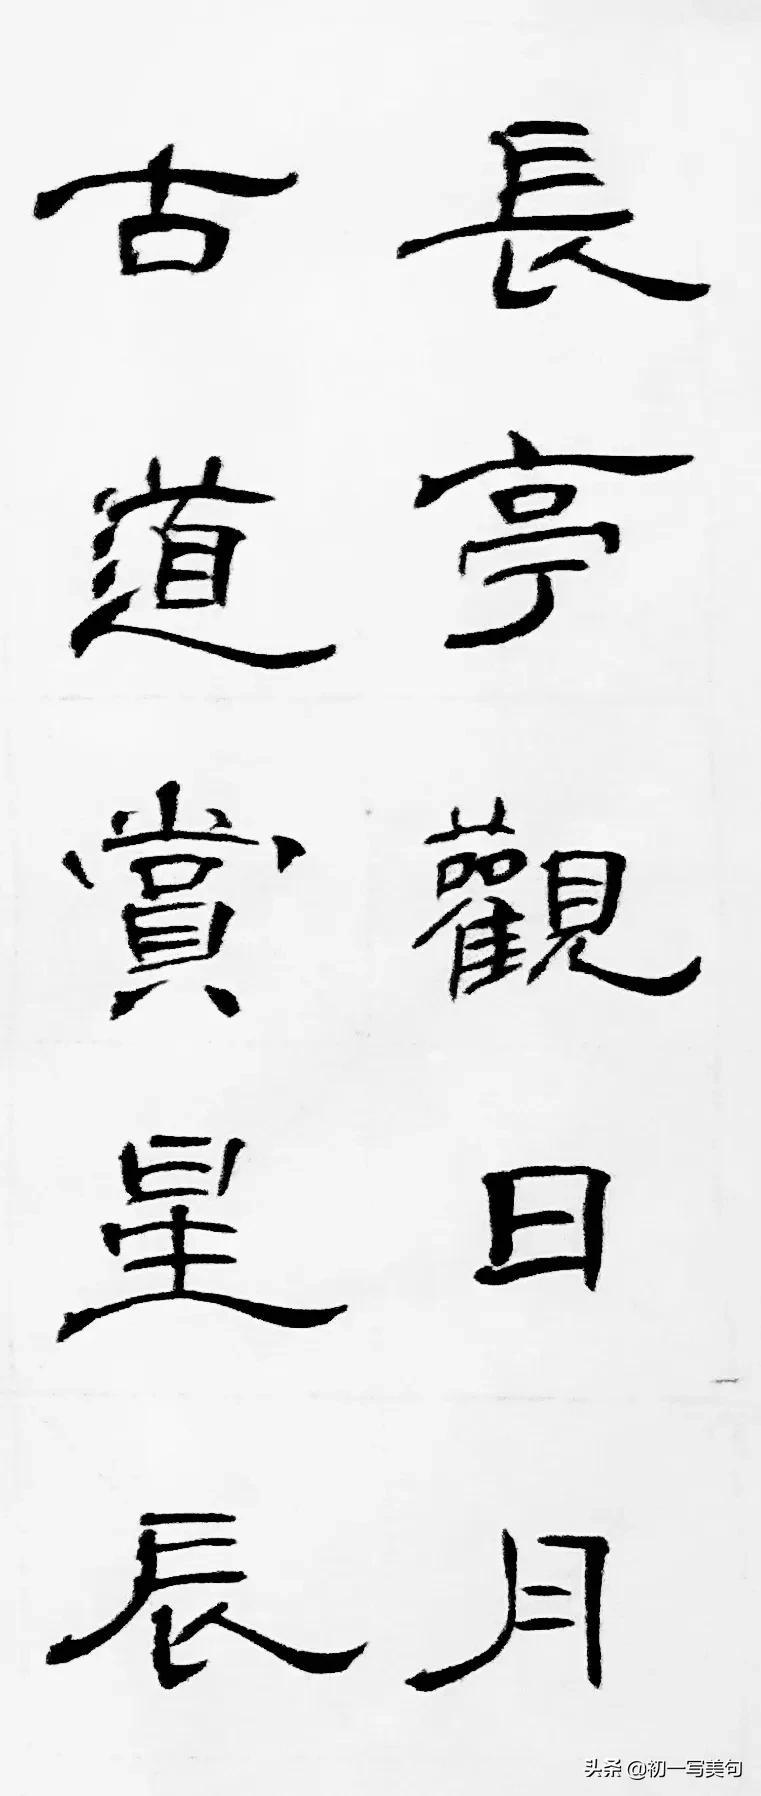 長亭觀日月
古道賞星辰
头条 @初一写美句